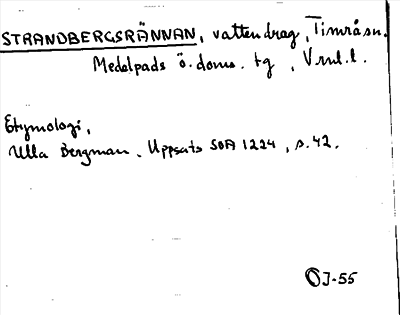 STRANDBERGSRÄNNAN, vattendrag, Timrå sn.
Medelpads ö. doms. tg, Vnl. l.
Etymologi,
Ulla Bergman. Uppsats SOA 1224, s. 42.
OJ-55